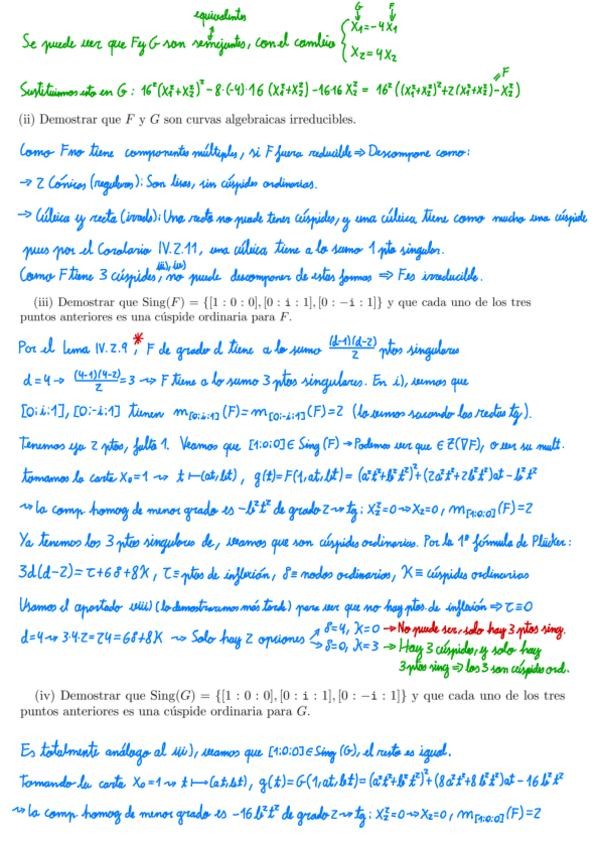 equivalentes
G F
Se puede ver que F y G son semejantes, con el cambio { X₁=-4X₁
X₂=4X₂
F
Sustituimos esto en G: 16²(X₁²+X₂²)²-8·(-4)·16(X₁²+X₂²)-16·16X₂² = 16²((X₁²+X₂²)²+2(X₁²+X₂²)-X₂²)
(ii) Demostrar que F y G son curvas algebraicas irreducibles.
Como F no tiene componentes múltiples, si F fuera reducible ⇒ Descompone como:
→ 2 Cónicas (regulares): Son lisas, sin cúspides ordinarias.
→ Cúbica y recta (irreds): Una recta no puede tener cúspides, y una cúbica tiene como mucho una cúspide
pues por el Corolario IV.2.11, una cúbica tiene a lo sumo 1 pto singular.
Como F tiene 3 cúspides, no puede descomponer de estas formas ⇒ F es irreducible.
(iii) Demostrar que Sing(F) = {[1 : 0 : 0], [0 : i : 1], [0 : -i : 1]} y que cada uno de los tres
puntos anteriores es una cúspide ordinaria para F.
Por el Lema IV.2.9*, F de grado d tiene a lo sumo (d-1)(d-2)/2 ptos singulares
d=4 → (4-1)(4-2)/2 = 3 ⇝ F tiene a lo sumo 3 ptos singulares. En i), vemos que
[0:i:1], [0:-i:1] tienen m[0:i:1](F)=m[0:-i:1](F)=2 (lo vemos sacando las rectas tg).
Tenemos ya 2 ptos, falta 1. Veamos que [1:0:0]∈ Sing(F) → Podemos ver que ∈ Z(∇F), o ver su mult.
tomamos la carta X₀=1 ⇝ t ↦ (at,bt), g(t)=F(1,at,bt)=(a²t²+b²t²)²+(2a²t²+2b²t²)at-b²t²
⇝ la comp homog de menor grado es -b²t² de grado 2 ⇝ tg: X₂²=0 → X₂=0, m[1:0:0](F)=2
Ya tenemos los 3 ptos singulares de, veamos que son cúspides ordinarias. Por la 1ª fórmula de Plücker:
3d(d-2)=τ+6δ+8K, τ≡ptos de inflexión, δ≡nodos ordinarios, K≡cúspides ordinarias
Usamos el apartado viii) (lo demostraremos más tarde) para ver que no hay ptos de inflexión ⇒ τ≡0
d=4 ⇝ 3·4·2=24=6δ+8K ⇝ Solo hay 2 opciones δ=4, K=0 → No puede ser, solo hay 3 ptos sing.
δ=0, K=3 → Hay 3 cúspides, y solo hay
3 ptos sing ⇒ los 3 son cúspides ord.
(iv) Demostrar que Sing(G) = {[1 : 0 : 0], [0 : i : 1], [0 : -i : 1]} y que cada uno de los tres
puntos anteriores es una cúspide ordinaria para G.
Es totalmente análogo al iii), veamos que [1:0:0]∈Sing(G), el resto es igual.
Tomando la carta X₀=1 ⇝ t ↦ (at,bt), g(t)=G(1,at,bt)=(a²t²+b²t²)²+(8a²t²+8b²t²)at-16b²t²
⇝ la comp homog de menor grado es -16b²t² de grado 2 ⇝ tg: X₂²=0 → X₂=0, m[1:0:0](F)=2